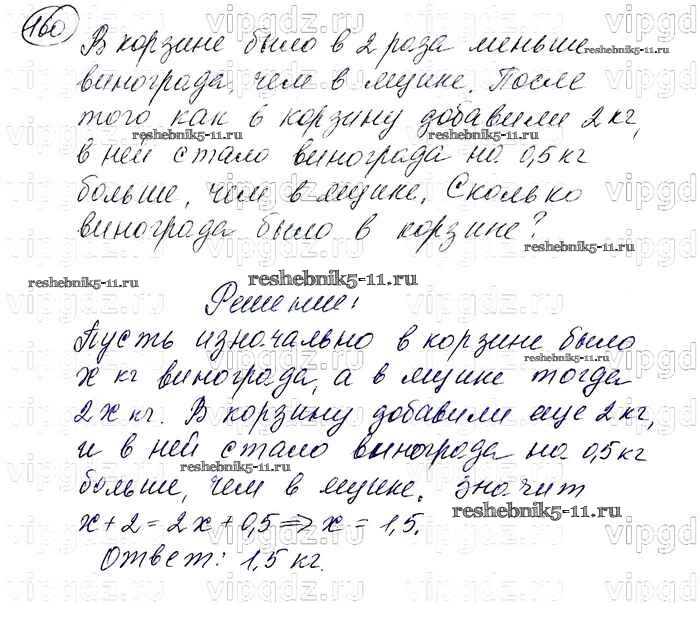 160
В корзине было в 2 раза меньше
винограда, чем в ящике. После
того как в корзину добавили 2 кг,
в ней стало винограда на 0,5 кг
больше, чем в ящике. Сколько
винограда было в корзине?
reshebnik5-11.ru
Решение:
Пусть изначально в корзине было
x кг винограда, а в ящике тогда
2x кг. В корзину добавили еще 2 кг,
и в ней стало винограда на 0,5 кг
больше, чем в ящике. Значит
x + 2 = 2x + 0,5 => x = 1,5.
Ответ: 1,5 кг.
vipgdz.ru